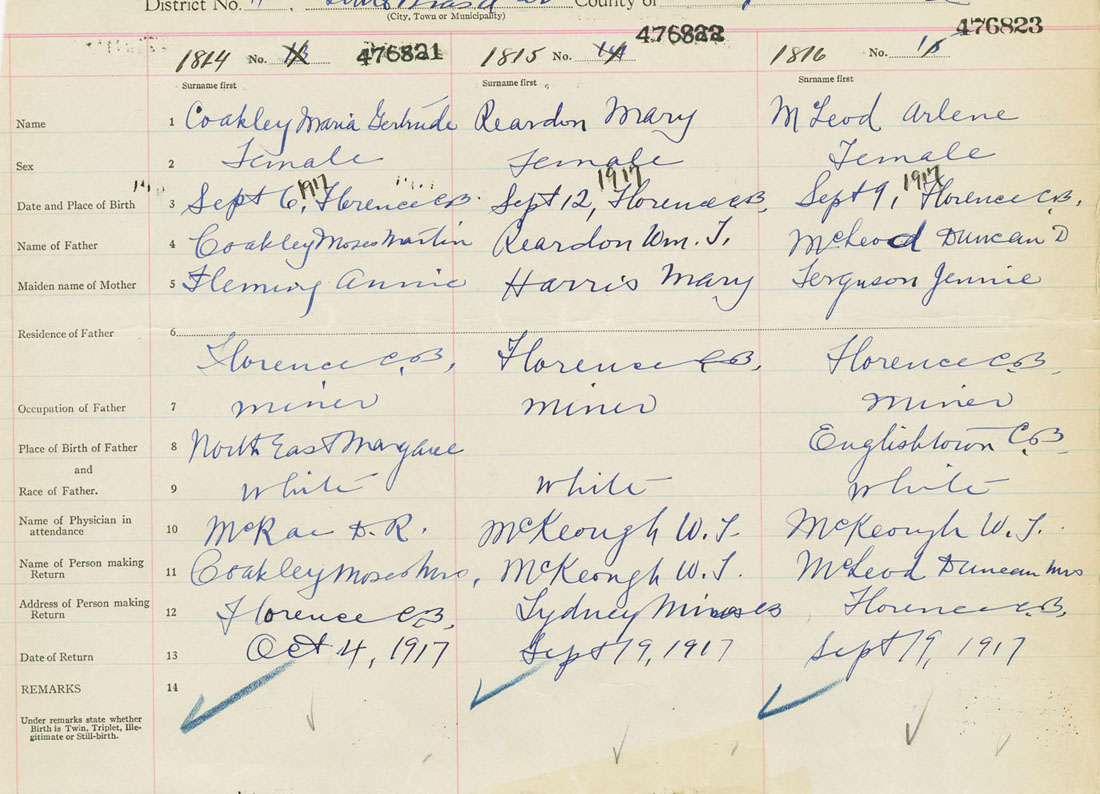 District No. County of
(City, Town or Municipality)
1814 No. 13 476821 1815 No. 14 476822 1816 No. 15 476823
Surname first Surname first Surname first
Name 1 Coakley Maria Gertrude Reardon Mary McLeod Arlene
Sex 2 Female Female Female
1917 1917 1917
Date and Place of Birth 3 Sept 6, Florence C.B. Sept 12, Florence C.B. Sept 9, Florence C.B.
Name of Father 4 Coakley Moses Martin Reardon Wm. J. McLeod Duncan D
Maiden name of Mother 5 Fleming Annie Harris Mary Ferguson Jennie
Residence of Father 6
Florence C.B. Florence C.B. Florence C.B.
Occupation of Father 7 miner miner miner
Place of Birth of Father 8 North East Margaree Englishtown C.B.
and
Race of Father. 9 White White White
Name of Physician in attendance 10 McRae D. R. McKeough W. J. McKeough W. J.
Name of Person making Return 11 Coakley Moses Mrs, McKeough W. J. McLeod Duncan Mrs
Address of Person making Return 12 Florence C.B. Sydney Mines CB Florence C.B.
Date of Return 13 Oct 4, 1917 Sept 19, 1917 Sept 19, 1917
REMARKS 14
Under remarks state whether
Birth is Twin, Triplet, Ille-
gitimate or Still-birth.